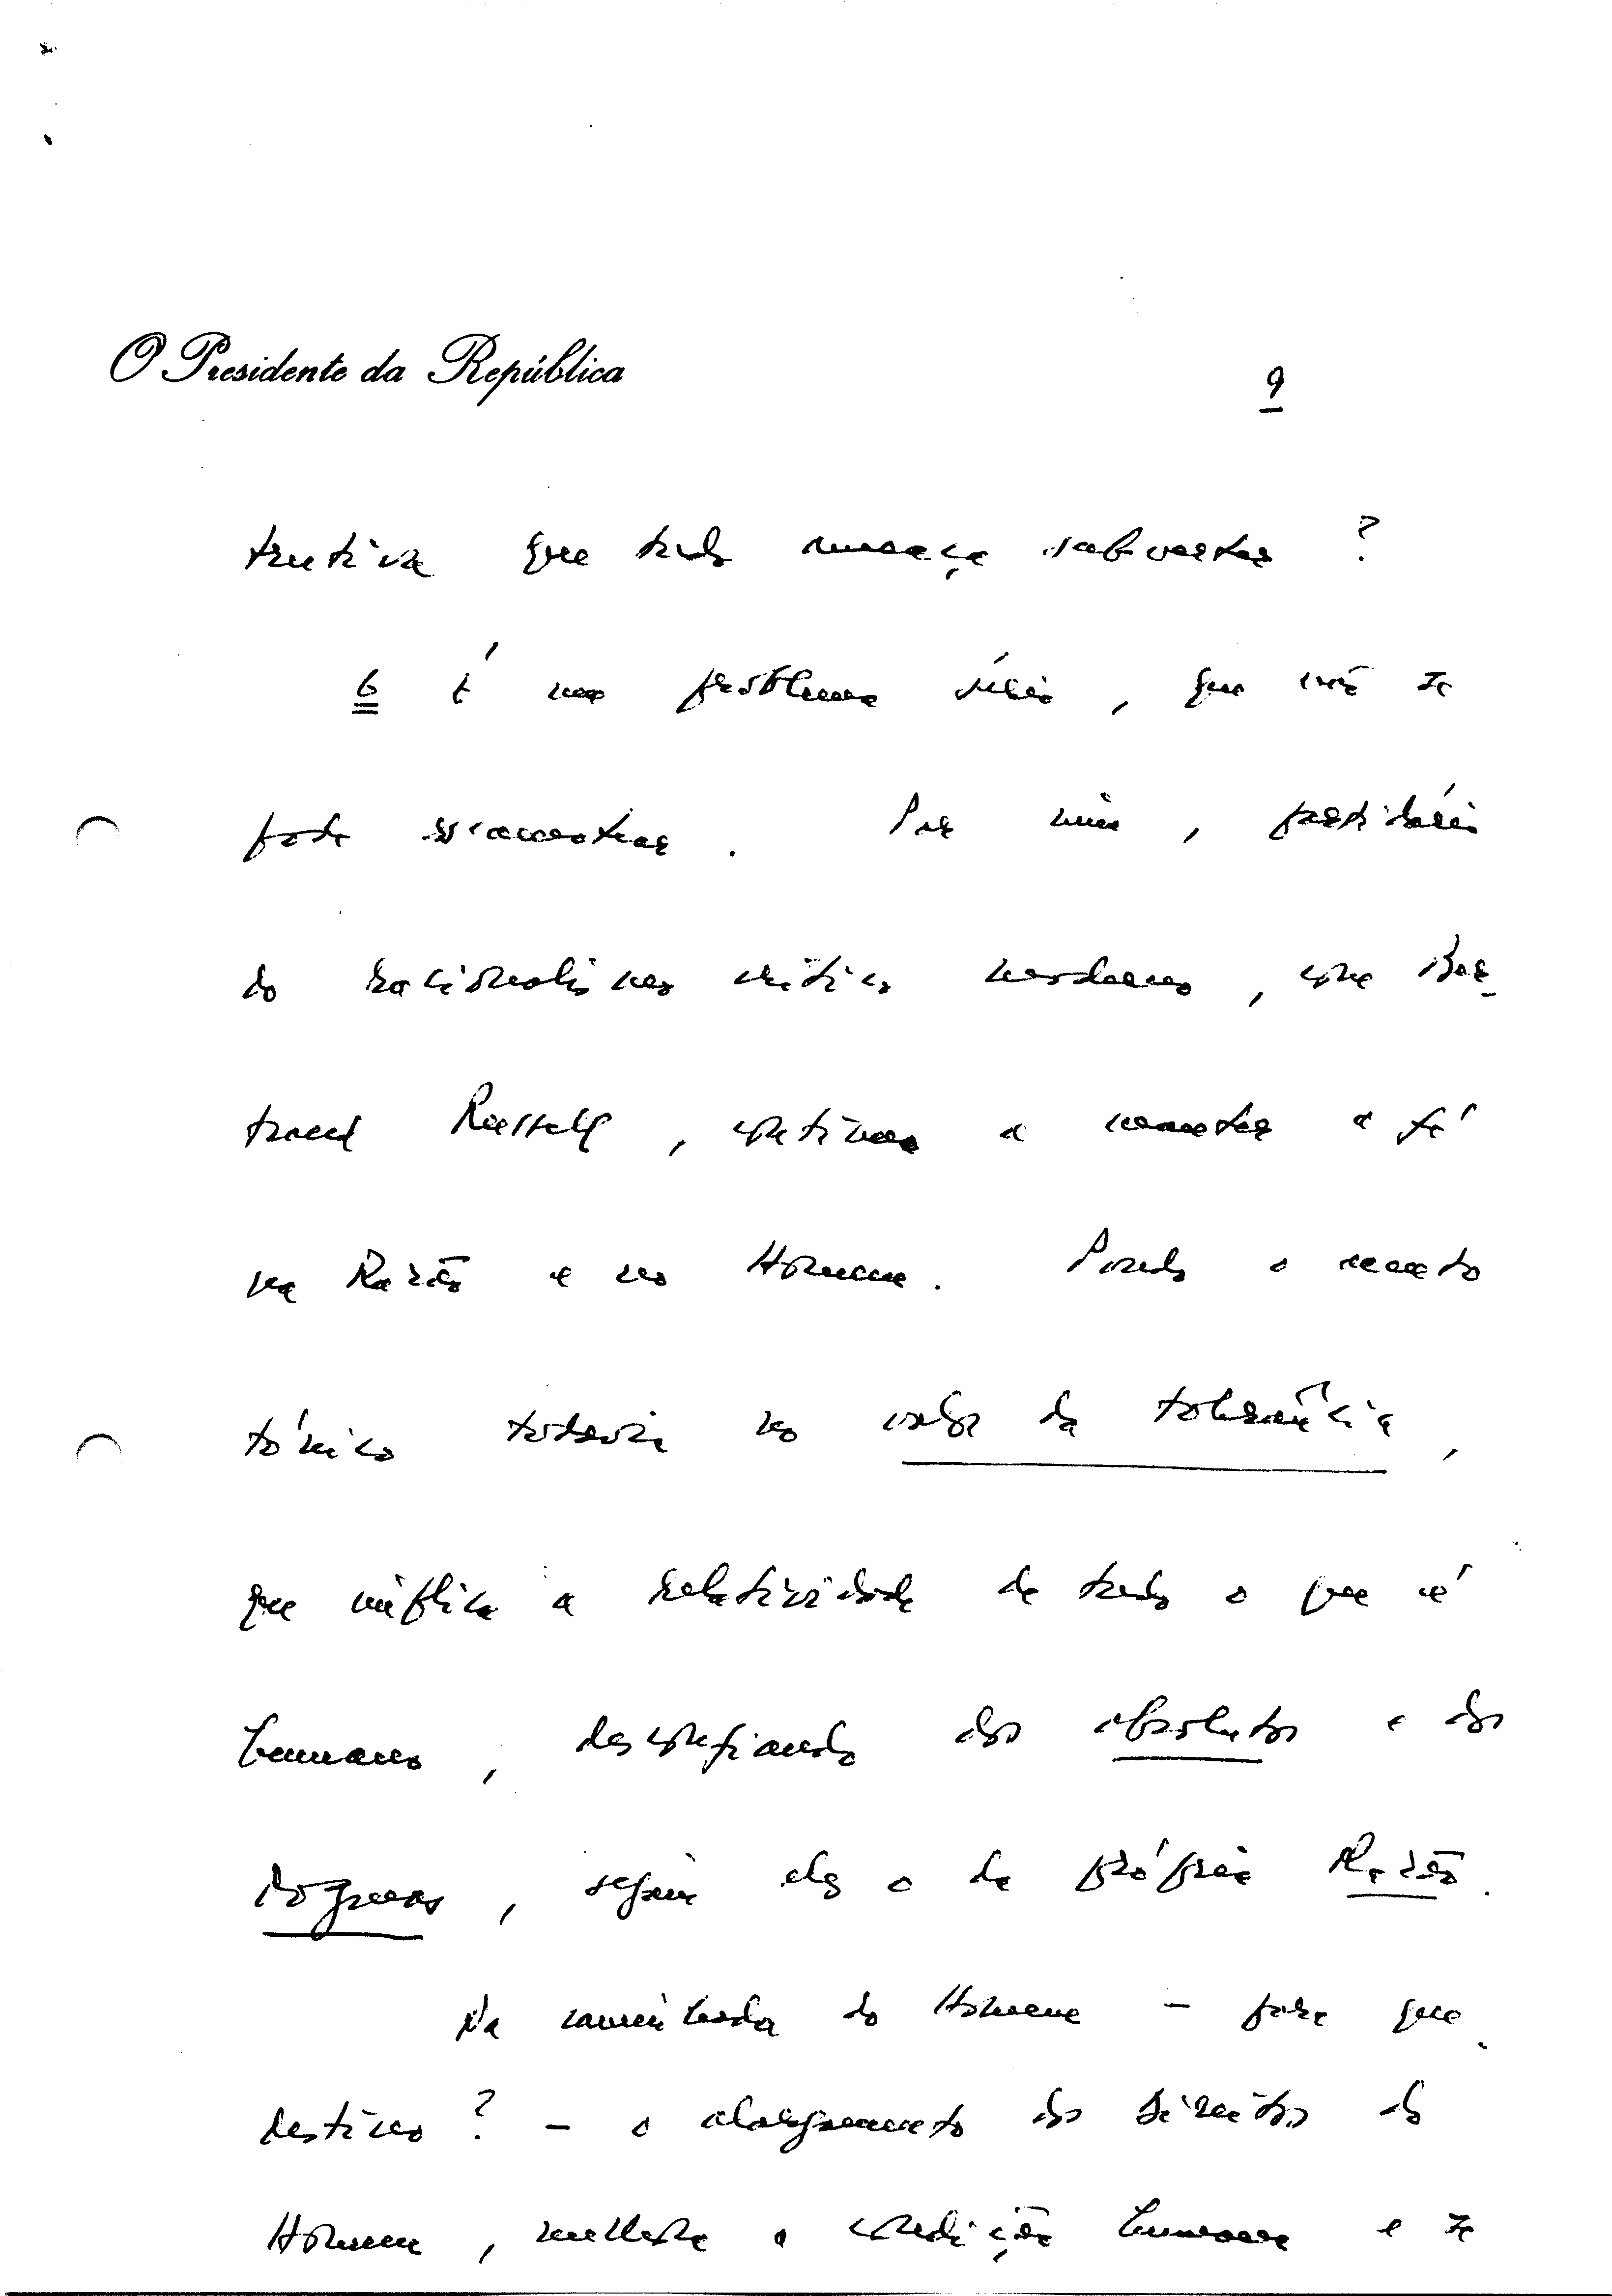 O Presidente da República
9
trutiva que tudo ameaça subverter ?
6 É um problema sério , que não se
pode escamotear . Por mim , partidário
do racionalismo crítico moderno , com Ber-
trand Russell , continuo a manter a fé
na Razão e no Homem . Pondo o acento
tónico todavia no valor da tolerância ,
que implica a relatividade de tudo o que é
humano , desconfiando dos absolutos e dos
dogmas , sejam eles o da própria Razão .
Na caminhada do Homem – para que
destino ? – o alargamento dos direitos do
Homem , melhora a condição humana e se